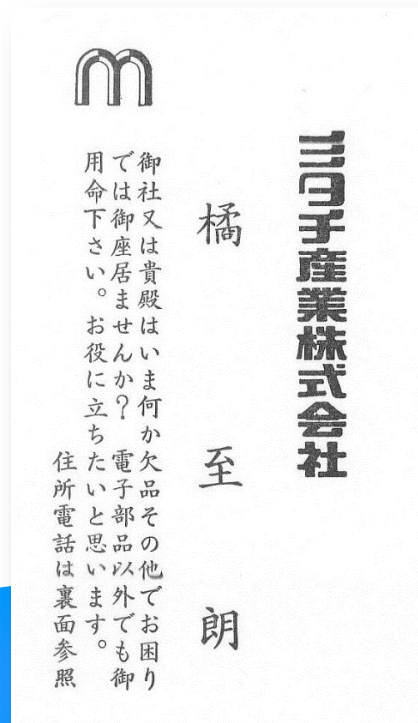 ミタチ産業株式会社
橘 至 朗
御社又は貴殿はいま何か欠品その他でお困り
では御座居ませんか? 電子部品以外でも御
用命下さい。お役に立ちたいと思います。
住所電話は裏面参照
m